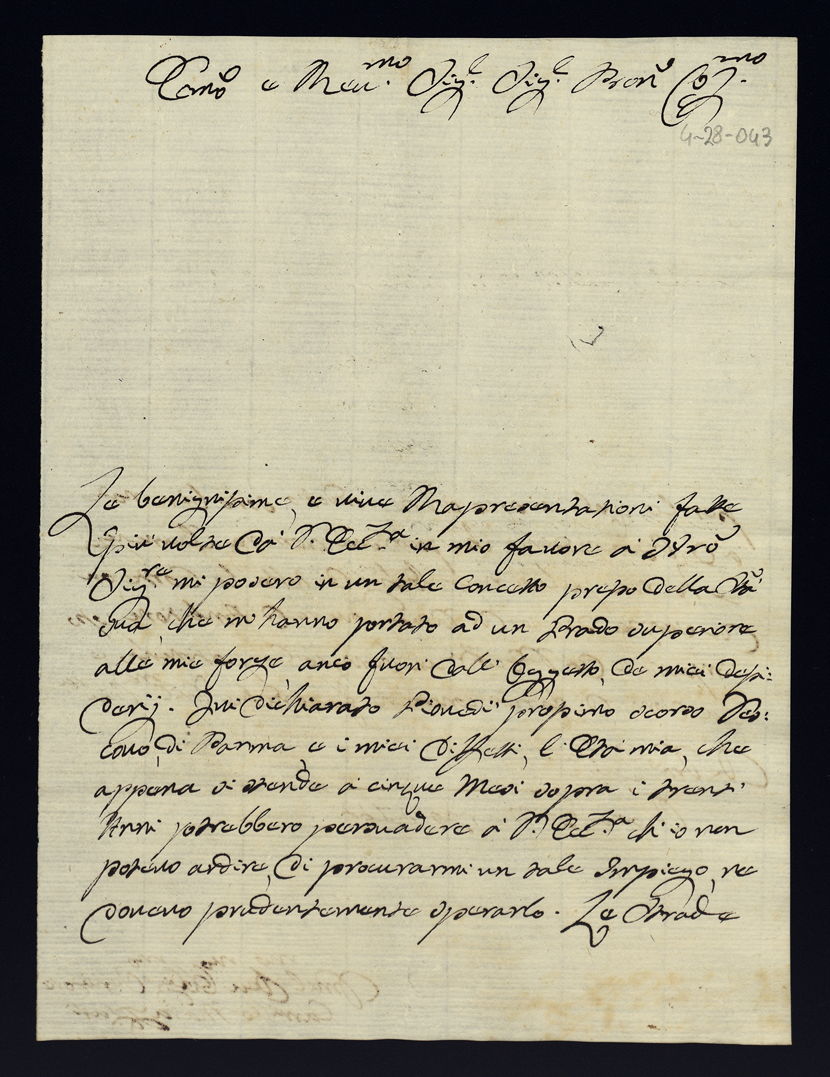 Emo e Reu.mo Sig.e Sig.e Pron Co mo.
4-28-043
Le benignissime, e viue Rapresentationi fatte
piu uolte da V. Ecc.za in mio fauore à Nro
Sig.re mi posero in un tale Concetto presso della Stà
Sua, che m'hanno portato ad un Grado superiore
alle mie forze, anco fuori dall' Oggetto de miei desi:
derij. Fui dichiarato Giouedì prossimo scorso Ves:
couo di Parma, e i miei Difetti, l'Età mia, che
appena si stende à cinque Mesi sopra i trent'
Anni potrebbero persuadere à V. Ecc.za ch'io non
poteuo ardire di procurarmi un tale Impiego, ne
doueuo prudentemente sperarlo. Le Strade